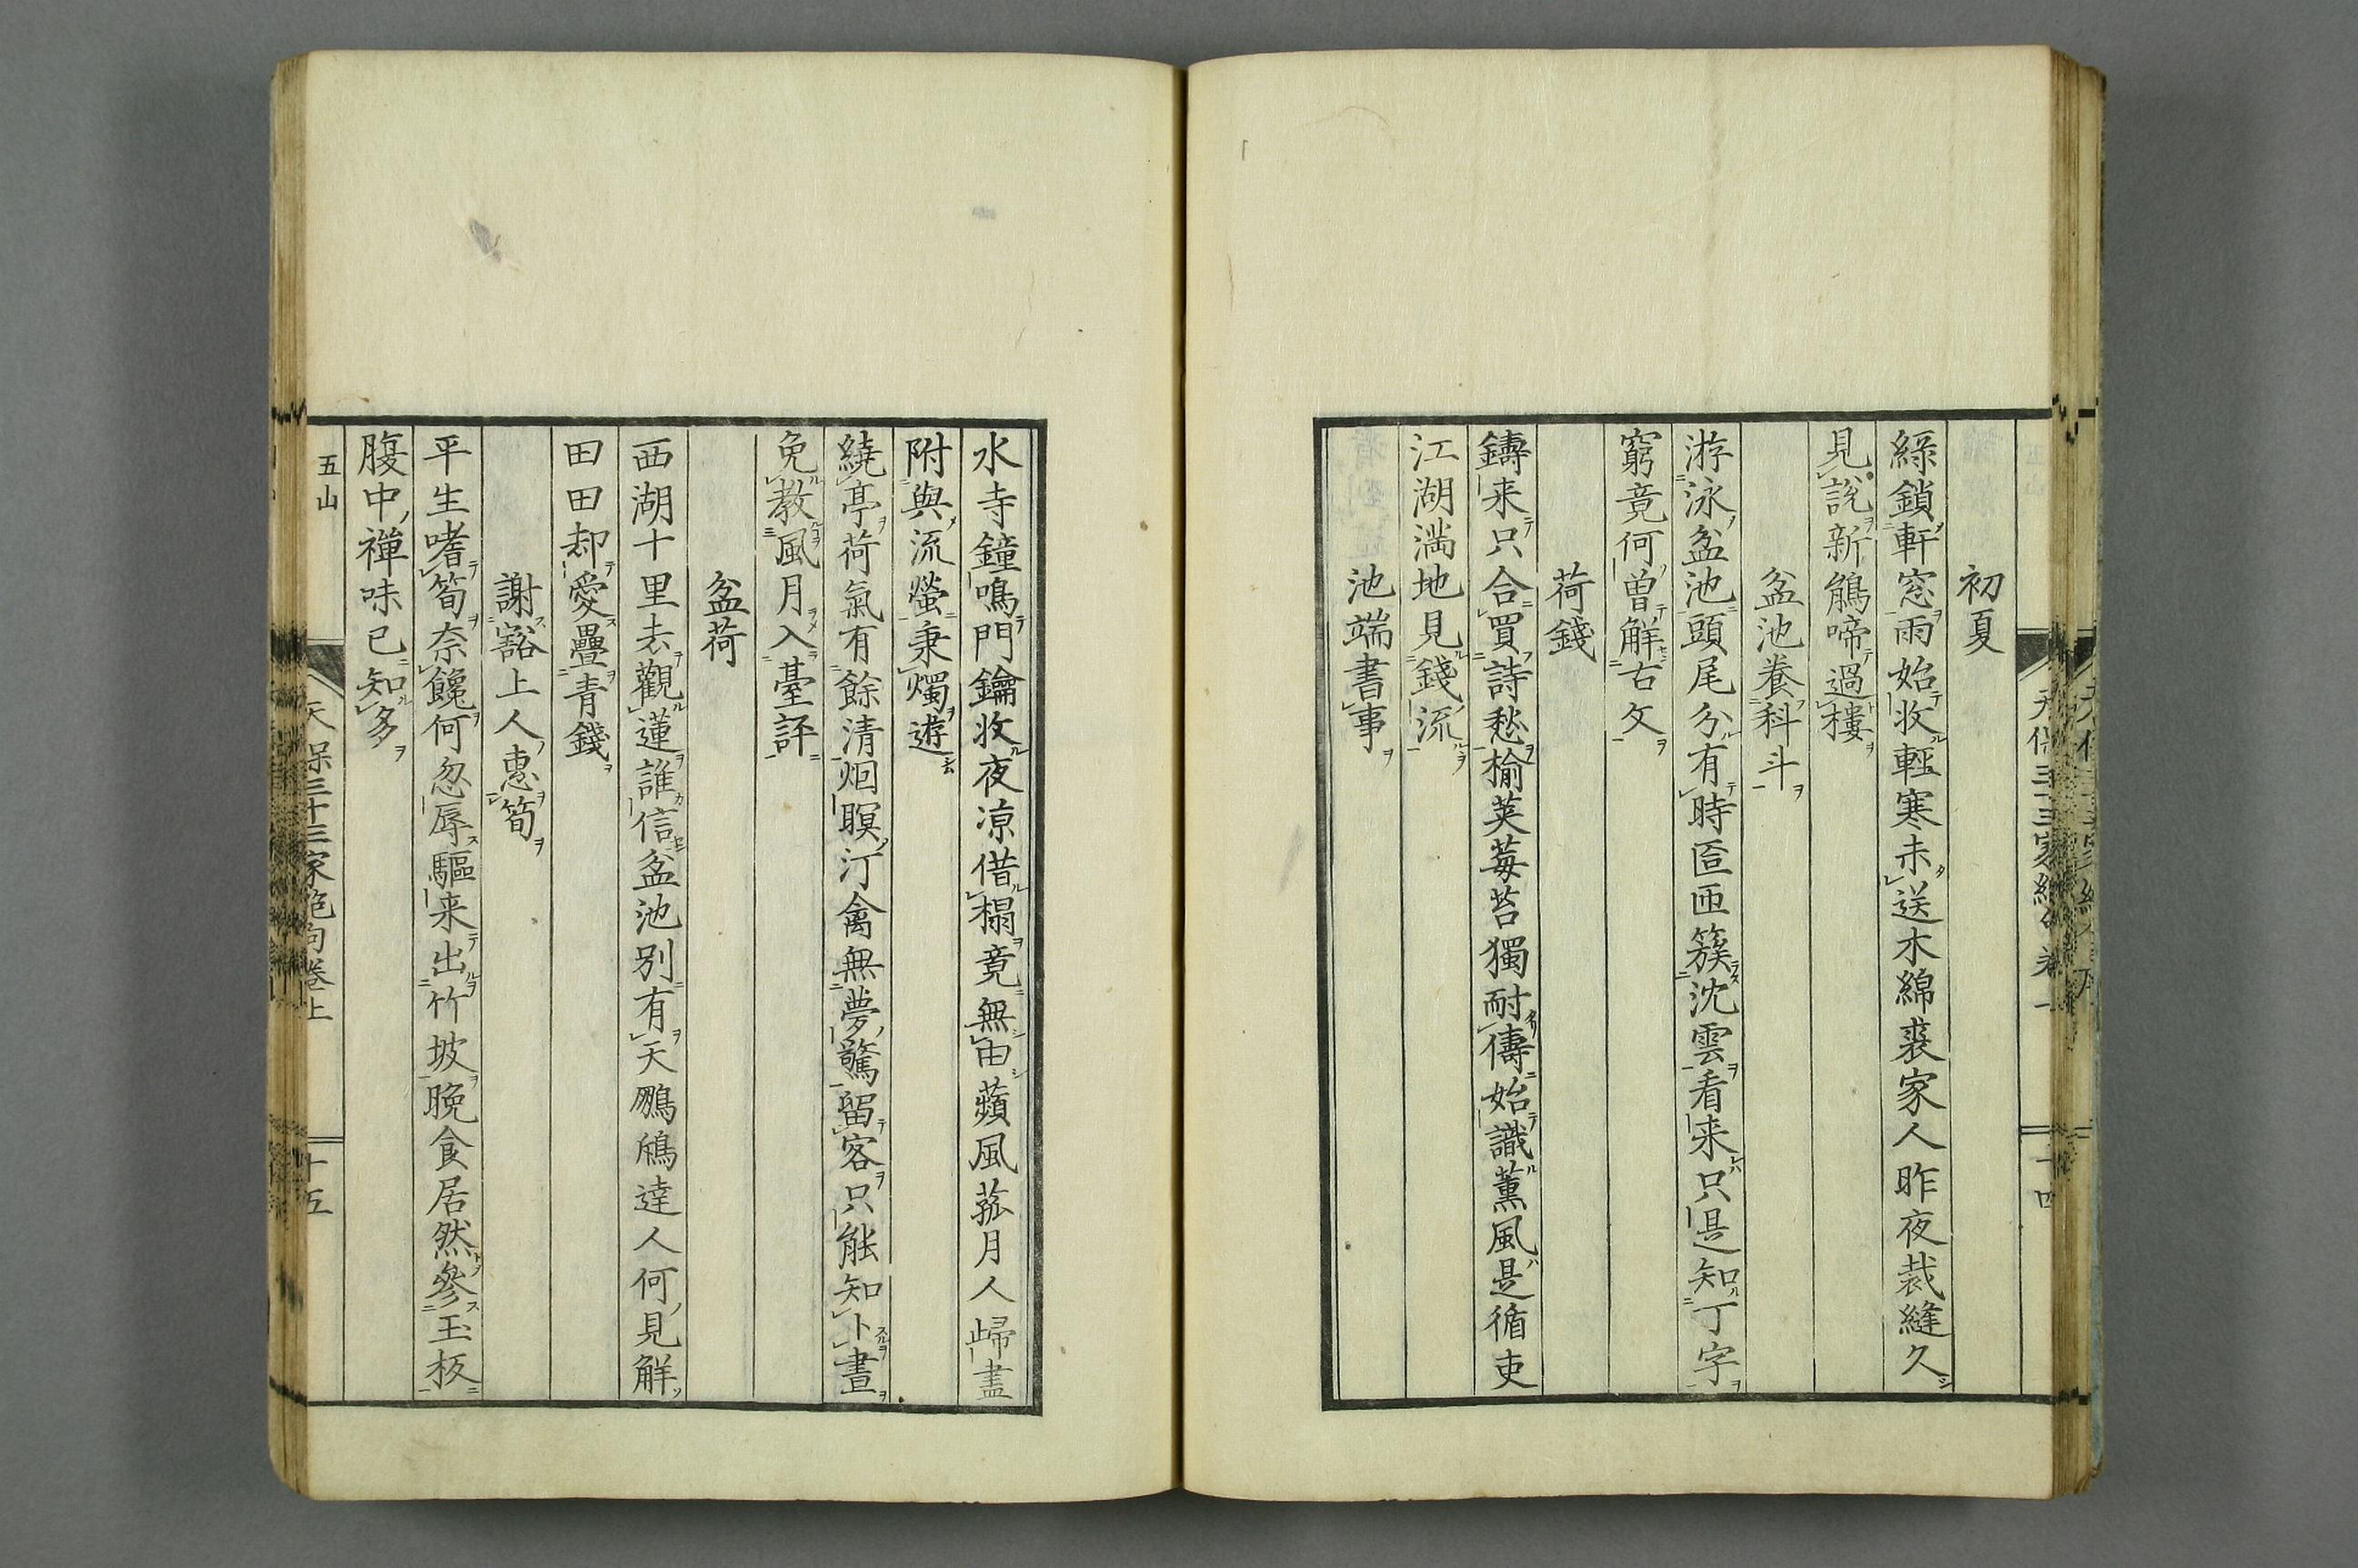 初夏
綠鎖軒窓雨始收輕寒未送木綿裘家人昨夜裁縫久
見說新鵑啼過樓
盆池養科斗
游泳盆池頭尾分有時匼匝簇沈雲看来只是知丁字
窮竟何曽解古文
荷錢
鑄来只合買詩愁榆莢莓苔獨耐儔始識薰風是循吏
江湖滿地見錢流
池端書事
水寺鐘鳴門鑰收夜凉借榻竟無由蘋風菰月人歸盡
附與流螢秉燭遊
繞亭荷氣有餘清烟暝汀禽無夢驚留客只能知卜晝
免教風月入臺評
盆荷
西湖十里去觀蓮誰信盆池別有天鵬鷃達人何見解
田田却愛疊青錢
謝豁上人惠筍
平生嗜筍奈饞何忽辱驅来出竹坡晚食居然參玉板
腹中禪味已知多
五山
天保三十三家絶句卷上
十五